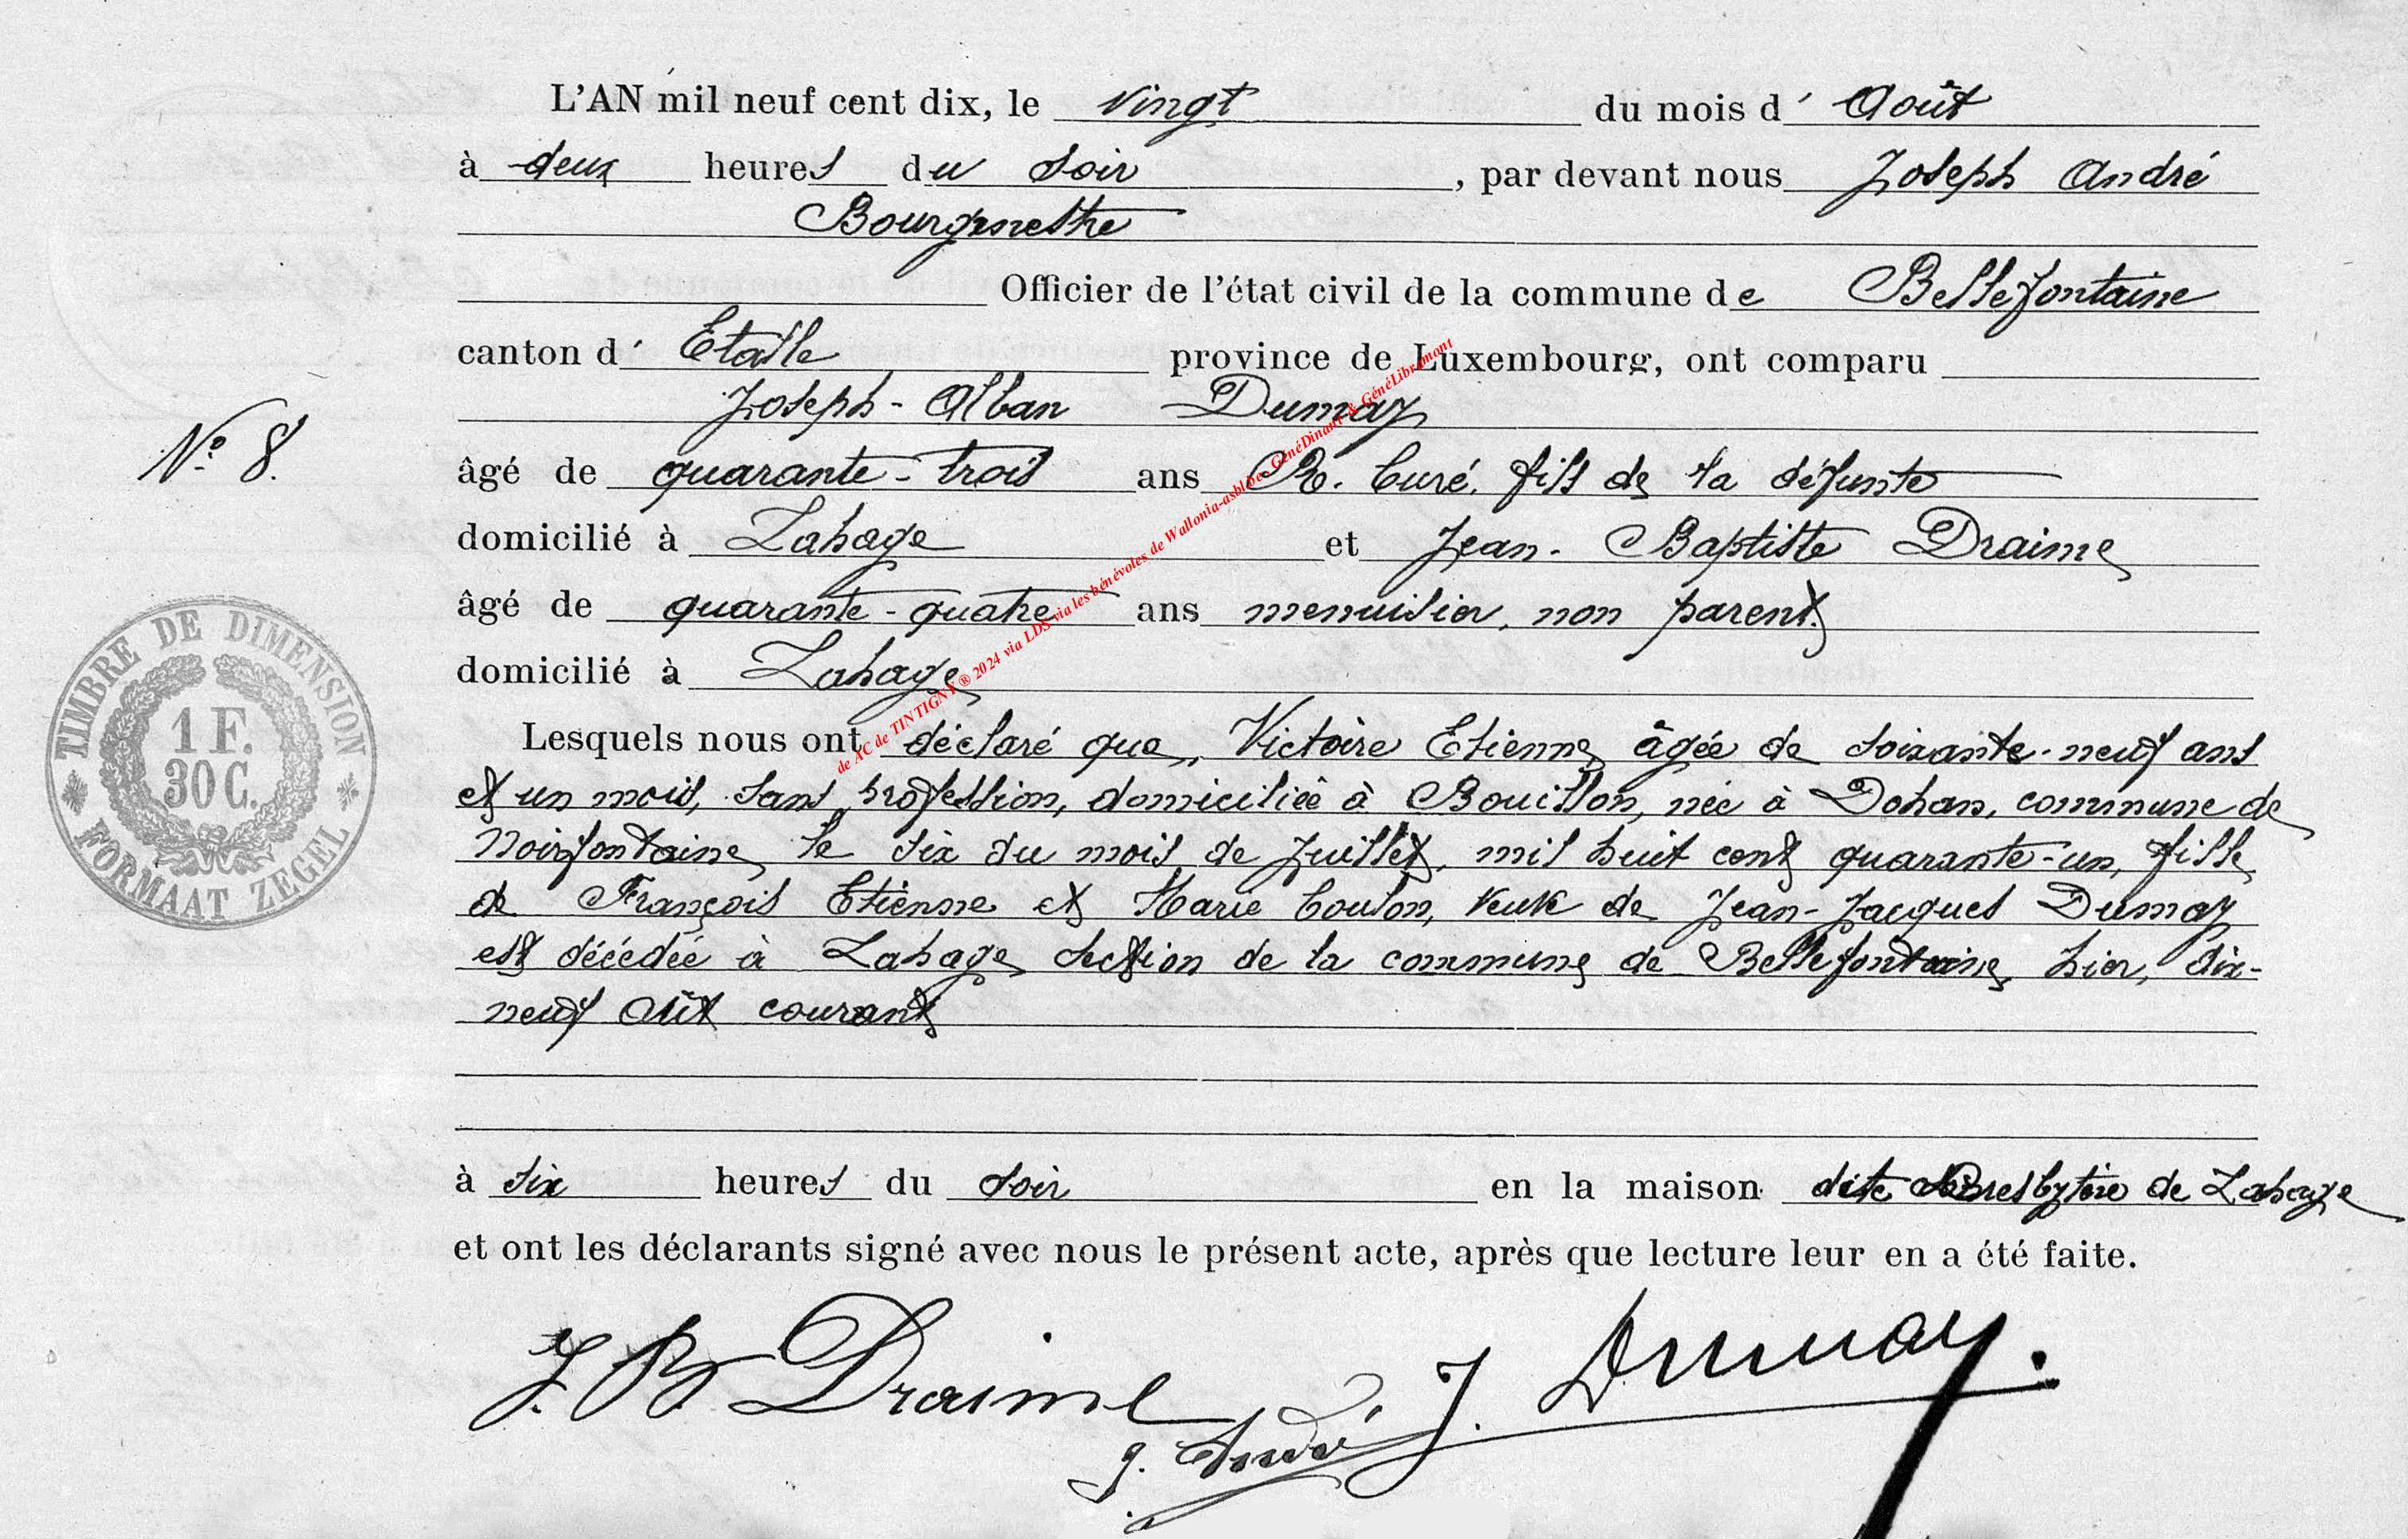 L'AN mil neuf cent dix, le vingt du mois d' Août
à deux heures du soir, par devant nous Joseph André
Bourgmestre
Officier de l'état civil de la commune de Bellefontaine
canton d' Etalle province de Luxembourg, ont comparu
Joseph-Alban Dumay
N° 8.
âgé de quarante-trois ans R. Curé, fils de la défunte
domicilié à Lahage et Jean-Baptiste Draime
âgé de quarante-quatre ans menuisier, non parent.
domicilié à Lahage
Lesquels nous ont déclaré que, Victoire Etienne âgée de soixante-neuf ans
et un mois, sans profession, domiciliée à Bouillon, née à Dohan, commune de
Noirfontaine le six du mois de Juillet, mil huit cent quarante-un, fille
de François Etienne et Marie Coulon, veuve de Jean-Jacques Dumay
est décédée à Lahage section de la commune de Bellefontaine, hier, dix-
neuf aût courant
à six heures du soir en la maison dite Presbytère de Lahage
et ont les déclarants signé avec nous le présent acte, après que lecture leur en a été faite.
J. B. Draime J. Dumay.
J. André
TIMBRE DE DIMENSION
1 F.
30 C.
FORMAAT ZEGEL
de AC de TINTIGNY ® 2024 via LDS via les bénévoles de Wallonia-asbl.be - GénéDinant & GénéLibramont